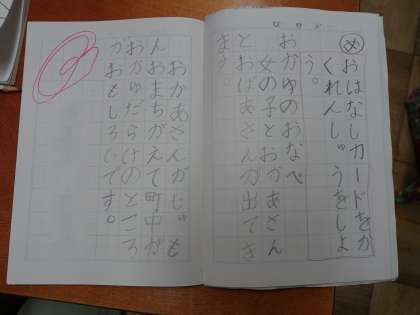 め おはなしカードをか
くれんしゅうをしよ
う。
おかゆのおなべ
女の子とおかあさん
とおばあさんが出てき
ます。
おかあさんがじゅも
んおまちがえて町中が
おかゆだらけのところ
がおもしろいです。